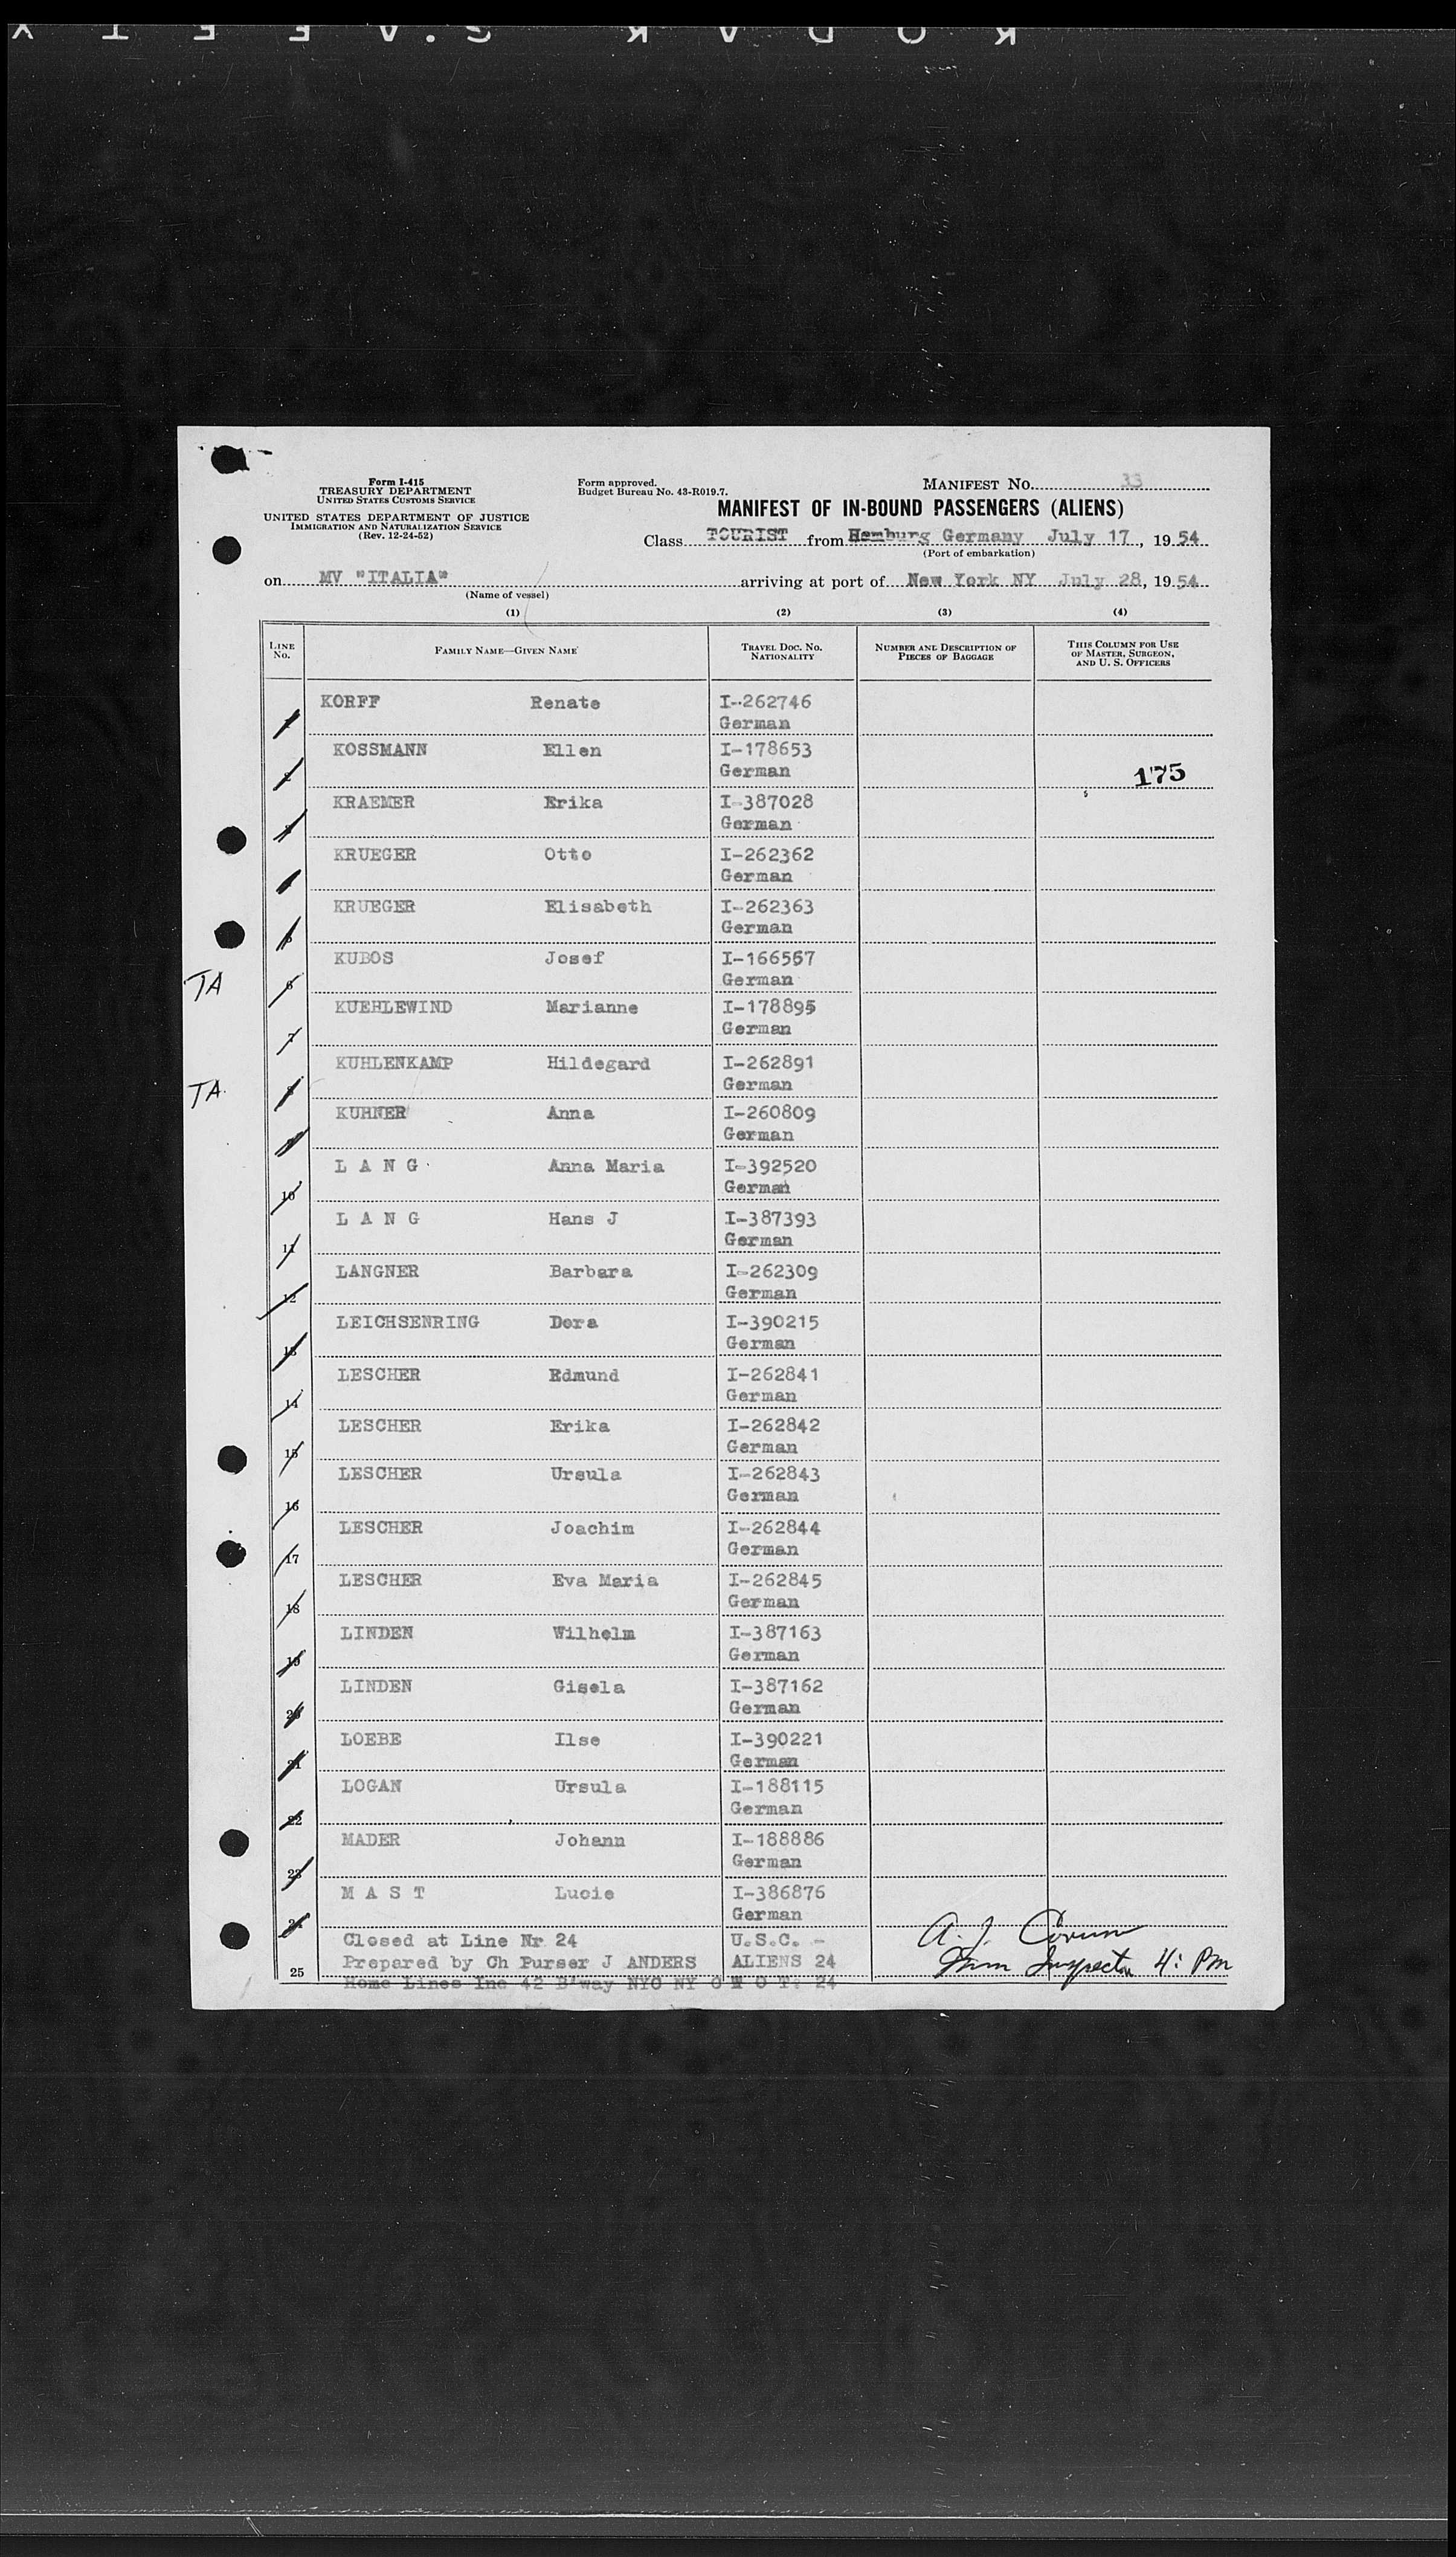 KODAK S.AFETY
Form I-415
TREASURY DEPARTMENT
UNITED STATES CUSTOMS SERVICE
UNITED STATES DEPARTMENT OF JUSTICE
IMMIGRATION AND NATURALIZATION SERVICE
(Rev. 12-24-52)
Form approved.
Budget Bureau No. 43-R019.7.
MANIFEST No. 33
MANIFEST OF IN-BOUND PASSENGERS (ALIENS)
Class TOURIST from Hamburg Germany July 17, 1954
(Port of embarkation)
on MV "ITALIA" arriving at port of New York NY July 28, 1954
(Name of vessel)
(1) (2) (3) (4)
LINE No. FAMILY NAME—GIVEN NAME TRAVEL DOC. NO. NATIONALITY NUMBER AND DESCRIPTION OF PIECES OF BAGGAGE THIS COLUMN FOR USE OF MASTER, SURGEON, AND U. S. OFFICERS
1 KORFF Renate I-262746
German
2 KOSSMANN Ellen I-178653
German 175
3 KRAEMER Erika I-387028
German
4 KRUEGER Otto I-262362
German
5 KRUEGER Elisabeth I-262363
German
TA 6 KUBOS Josef I-166557
German
7 KUEHLEWIND Marianne I-178895
German
TA 8 KUHLENKAMP Hildegard I-262891
German
9 KUHNER Anna I-260809
German
10 L A N G Anna Maria I-392520
German
11 L A N G Hans J I-387393
German
12 LANGNER Barbara I-262309
German
13 LEICHSENRING Dora I-390215
German
14 LESCHER Edmund I-262841
German
15 LESCHER Erika I-262842
German
16 LESCHER Ursula I-262843
German
17 LESCHER Joachim I-262844
German
18 LESCHER Eva Maria I-262845
German
19 LINDEN Wilhelm I-387163
German
20 LINDEN Gisela I-387162
German
21 LOEBE Ilse I-390221
German
22 LOGAN Ursula I-188115
German
23 MADER Johann I-188886
German
24 M A S T Lucie I-386876
German
Closed at Line Nr 24 U.S.C. -
25 Prepared by Ch Purser J ANDERS ALIENS 24
Home Lines Inc 42 B'way NYC NY T O T: 24
A. J.
Imm Inspector 4: PM